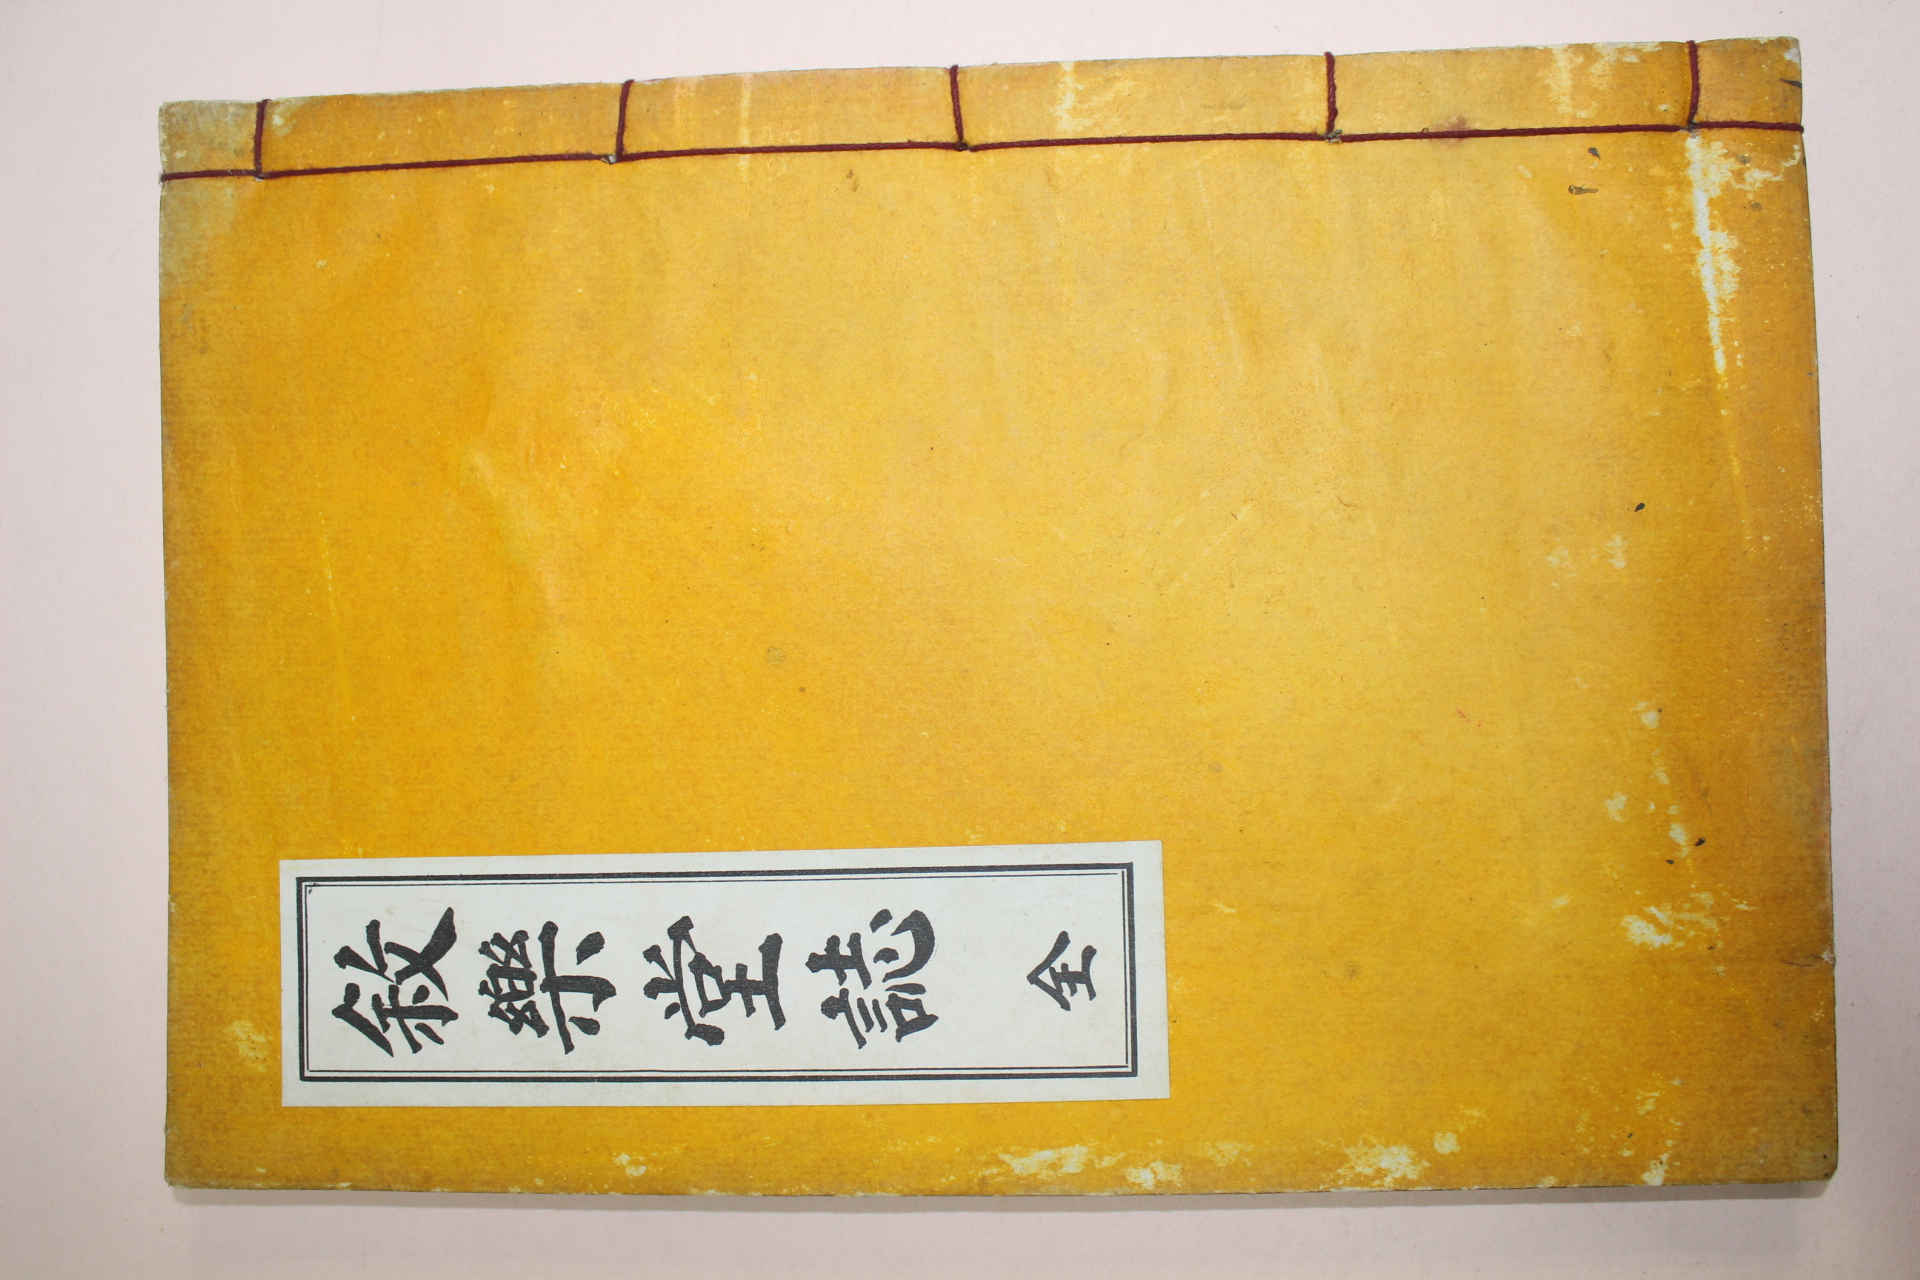 敍樂堂誌 全